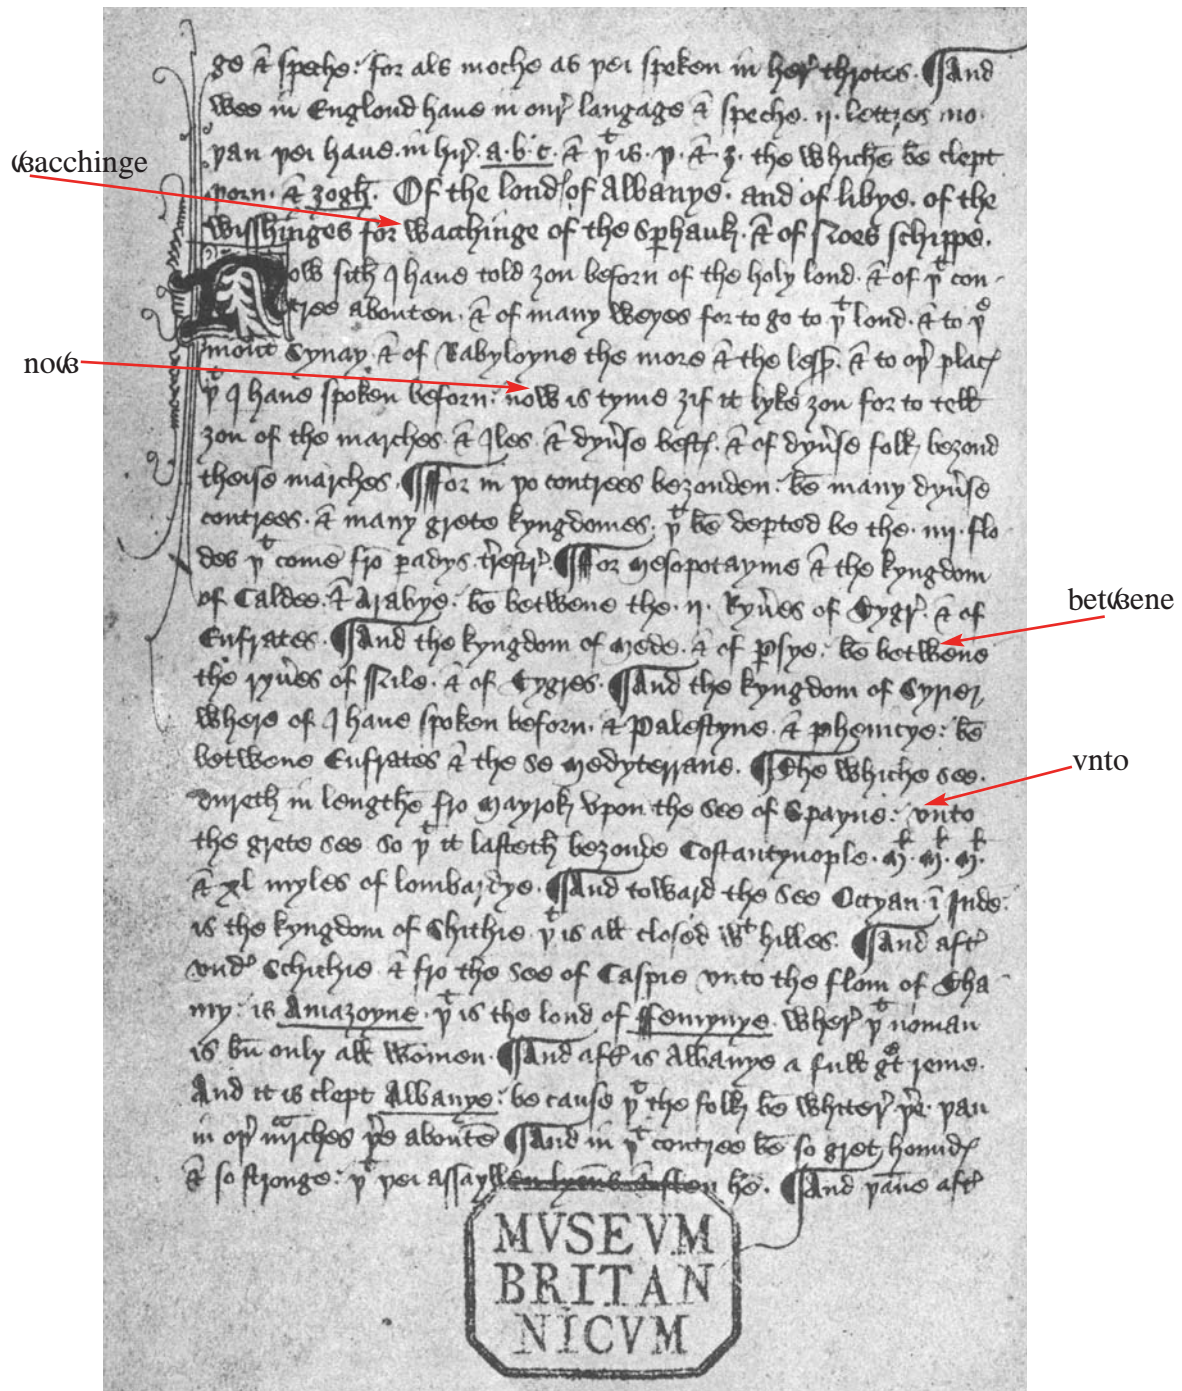 ge & speche: for als moche as þei speken in her throtes. ¶And
wee in Englond haue in our langage & speche .ij. lettres mo
þan þei haue in hir .a.b.c. & þᵗ is .þ. & .ȝ. the whiche be clept
ꟃacchinge
þorn. & ȝogh. Of the lond of Albanye. and of libye. of the
wisshinges for wacchinge of the Sperhauk. & of Noes schippe.
Now sith I haue told ȝou beforn of the holy lond. & of þᵗ con-
tree abouten. & of many weyes for to go to þᵗ lond. & to þᵉ
mont Synay. & of Babyloyne the more & the less. & to oþer plac
noꟃ
þᵗ I haue spoken beforn: now is tyme ȝif it lyke ȝou for to tell
ȝou of the marches. & Iles. & dyuerse best. & of dyuerse folk beȝond
theise marches. ¶For in þo contrees beȝonden: be many dyuerse
contrees. & many grete kyngdomes. þᵗ be departed be the .iiij. flo-
des þᵗ comē fro paradys terrestr. ¶For Mesopotayme & the kyngdom
of Caldee. & Arabye. be betwene the .ij. Ryueres of Tygr. & of
betꟃene
Eufrates. ¶And the kyngdom of Mede. & of Persye: be betwene
the ryueres of Nile. & of Tygres. ¶And the kyngdom of Syrie
where of I haue spoken beforn. & Palestyne. & phenicye: be
betwene Eufrates & the se Medyterrane. ¶The whiche see.
vnto
dureth in lengthe fro Mayrok vpon the see of Spayne: vnto
the grete see so þᵗ it lasteth beȝonde Costantynople .Mˡ. Mˡ. Mˡ.
& xl myles of lombardye. ¶And toward the see Occyan ī Inde:
is the kyngdom of Shithie þᵗ is all closed wᵗ hilles. ¶And aftʳ
vnder Schithie & fro the see of Caspie vnto the flom of Tha
ny: is Amazoyne. þᵗ is the lond of ffemynye. wher þᵗ noman
is but only all women. ¶And aft is Albanye a full gret reme.
And it is clept Albanye: be cause þᵗ the folk be whiter þere. þan
in oþer marches þere aboutē ¶And in þᵗ contree be so gret hound
& so stronge: þᵗ þei assayllen lyouns & slen hē. ¶And þanne aft
MVSEVM
BRITAN
NICVM